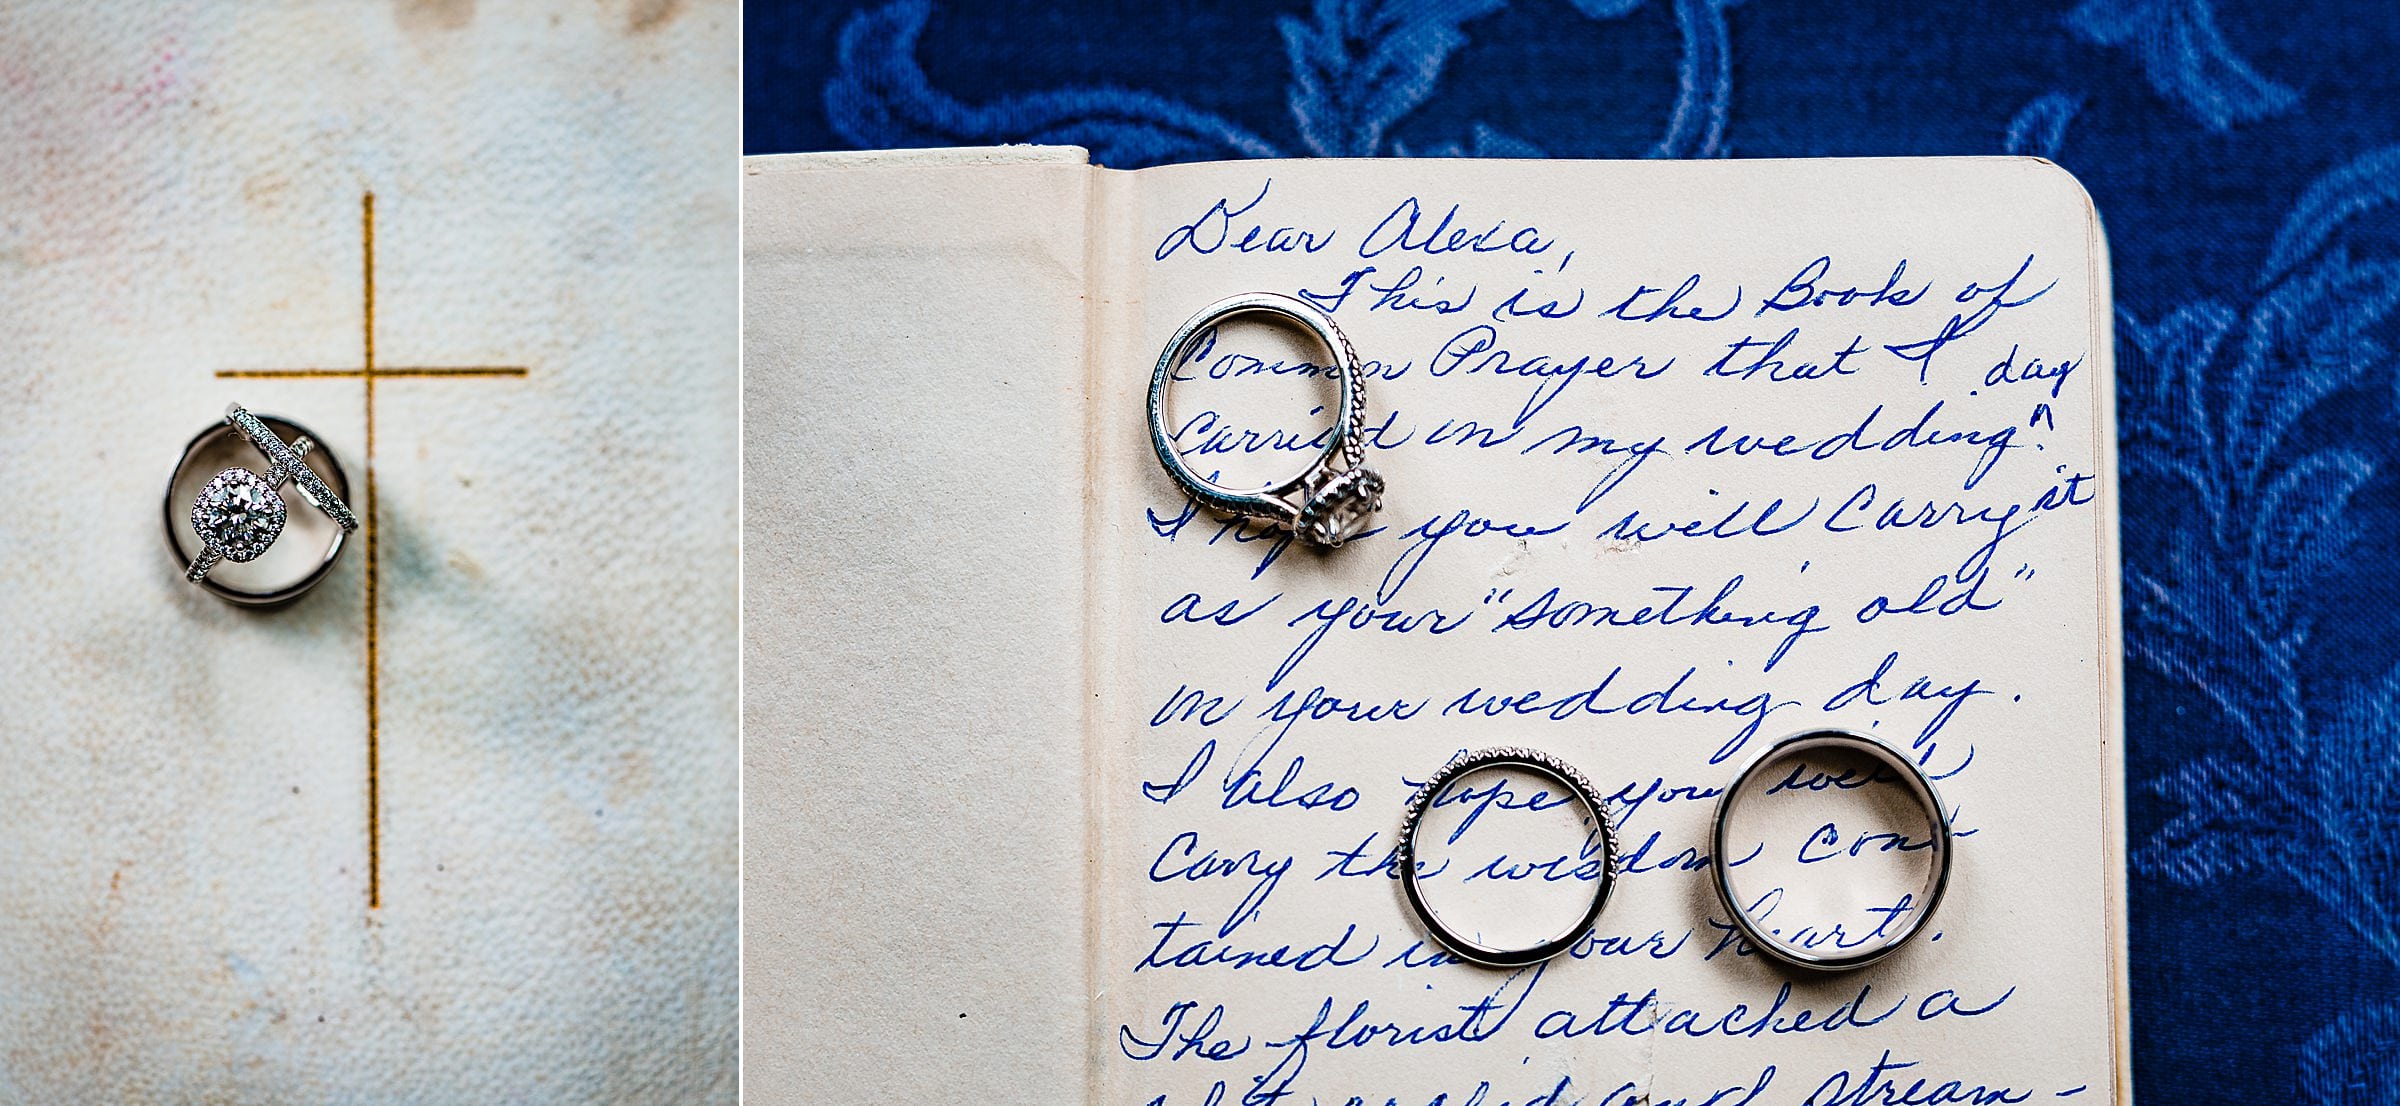 Dear Alexa,
This is the Book of
Common Prayer that I
carried on my wedding ^ day.
I hope you will carry it
as your "something old"
on your wedding day.
I also hope you will
carry the wisdom con-
tained in your heart.
The florist attached a
white orchid and stream-